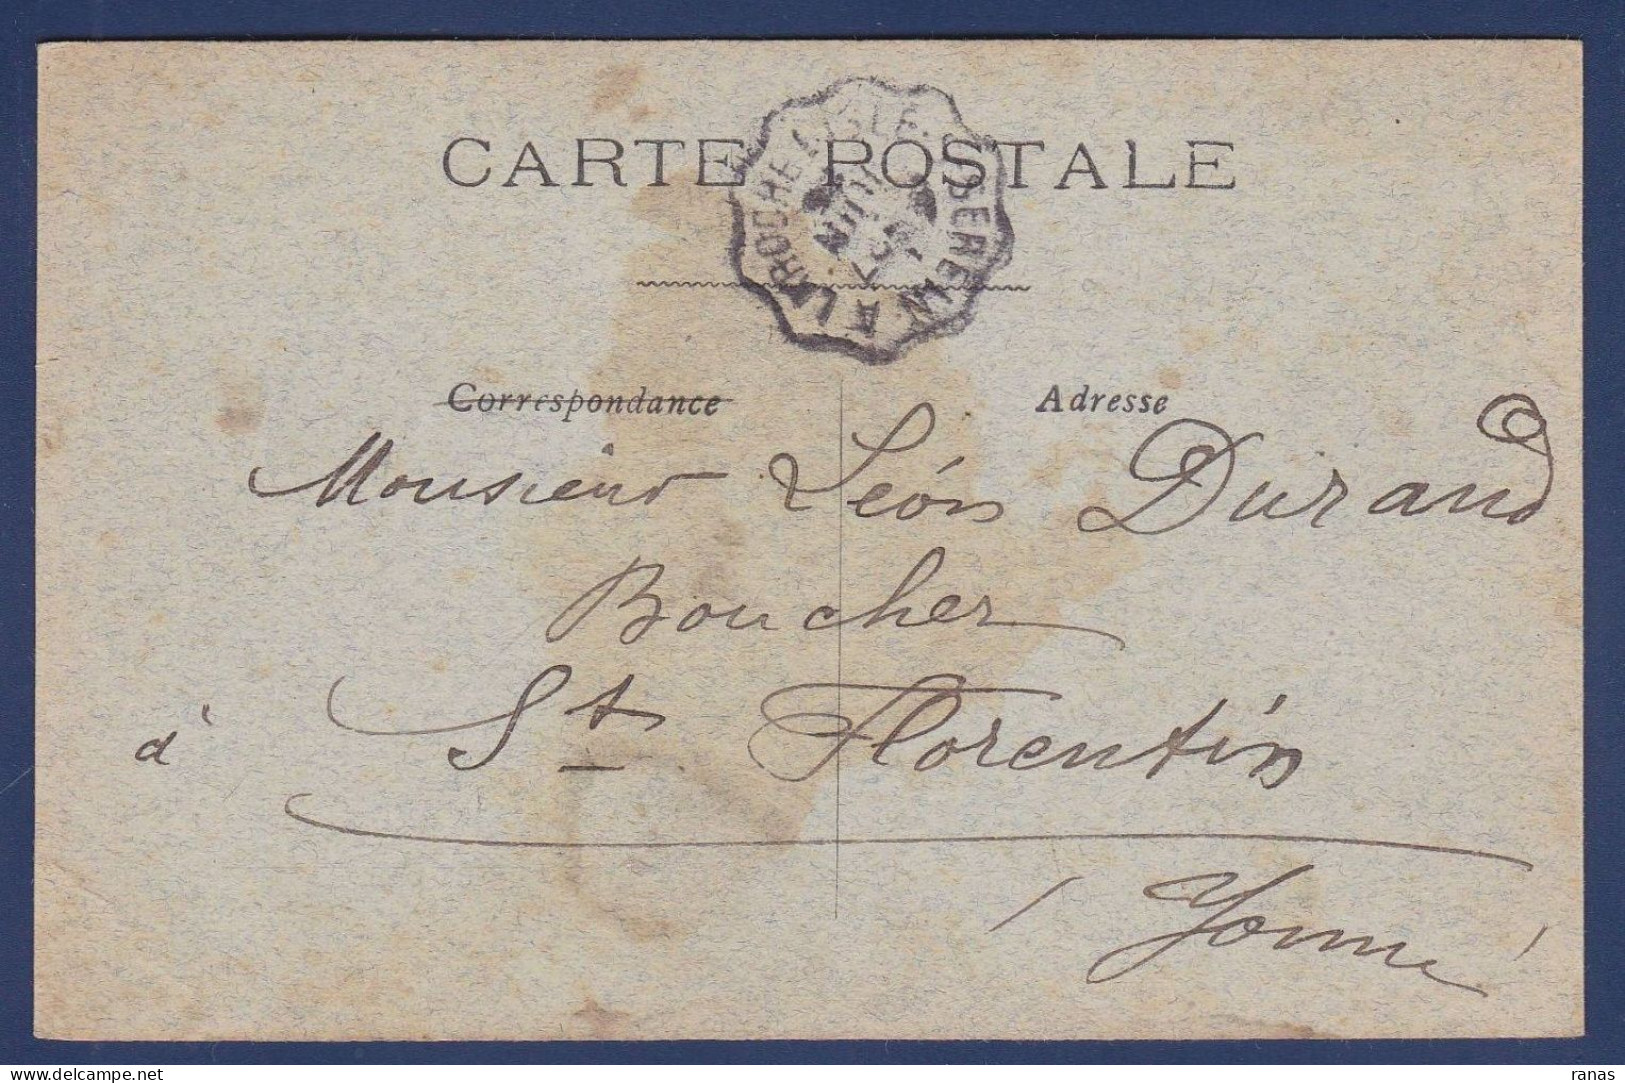 CARTE POSTALE
L'ISLE-S-SEREIN A LAROCHE
JUIN
Correspondance
Adresse
Monsieur Léon Durand
Boucher
à St Florentin
Yonne
ranas